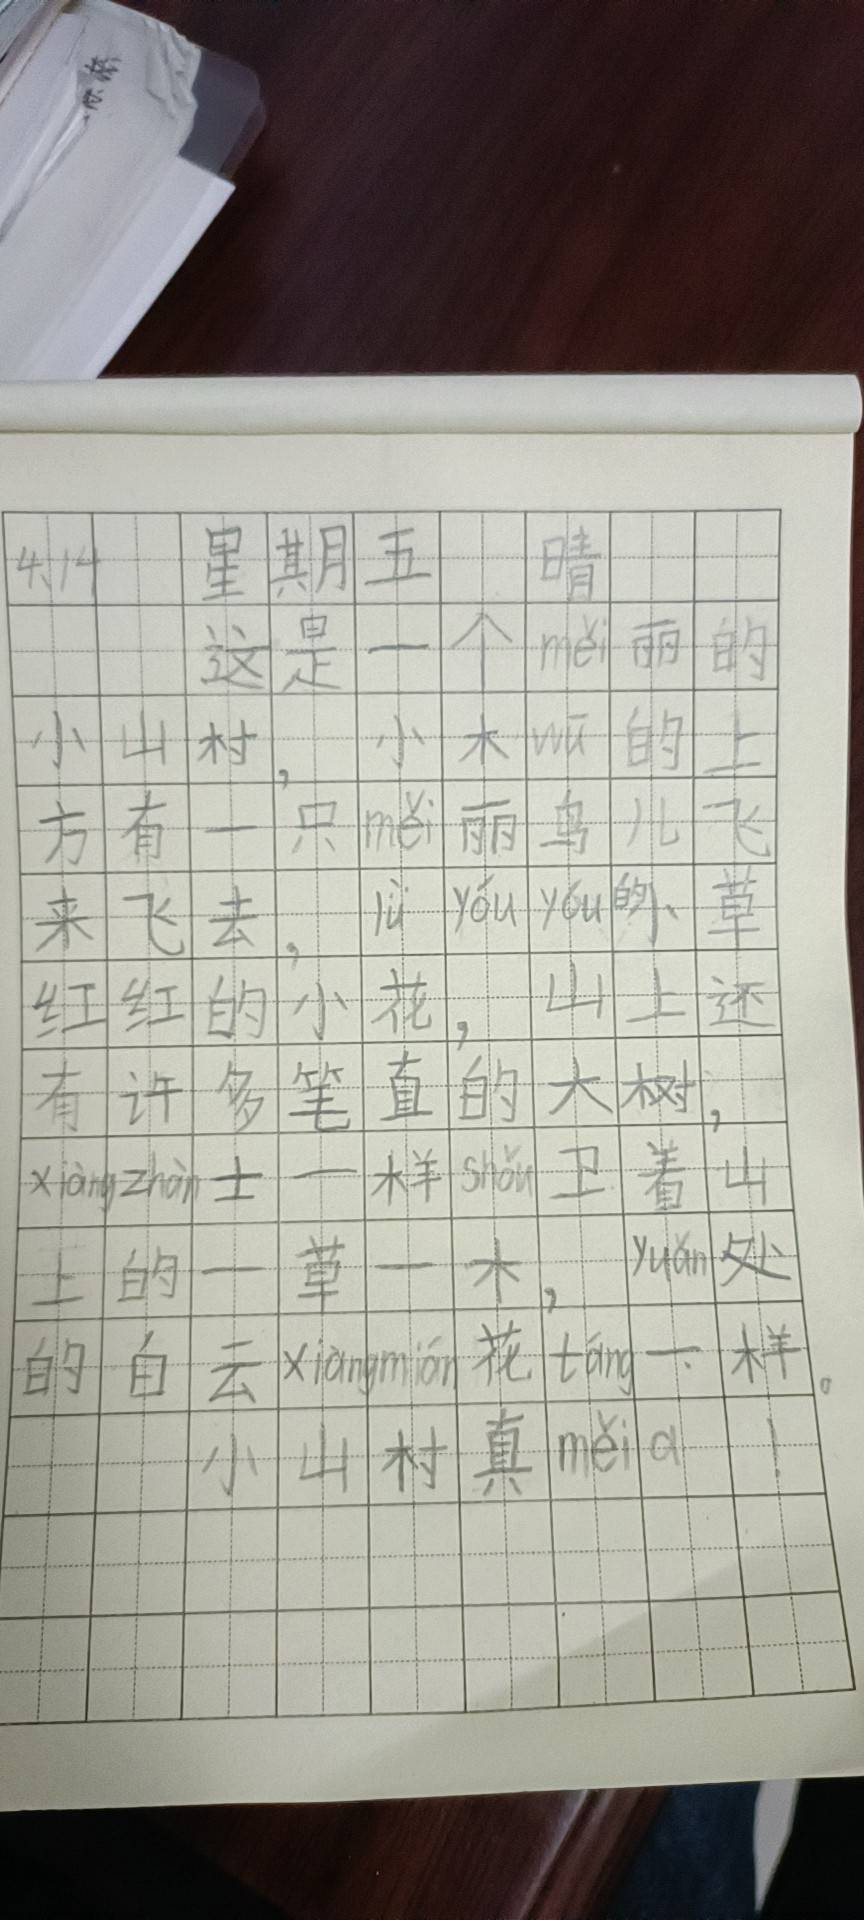 4.14 星期五 晴
这是一个měi丽的
小山村，小木wū的上
方有一只měi丽鸟儿飞
来飞去，lǜ yóu yóu的小草
红红的小花，山上还
有许多笔直的大树，
xiàng zhàn士一样shǒu卫着山
上的一草一木，yuǎn处
的白云xiàng mián花táng一样。
小山村真měi a！